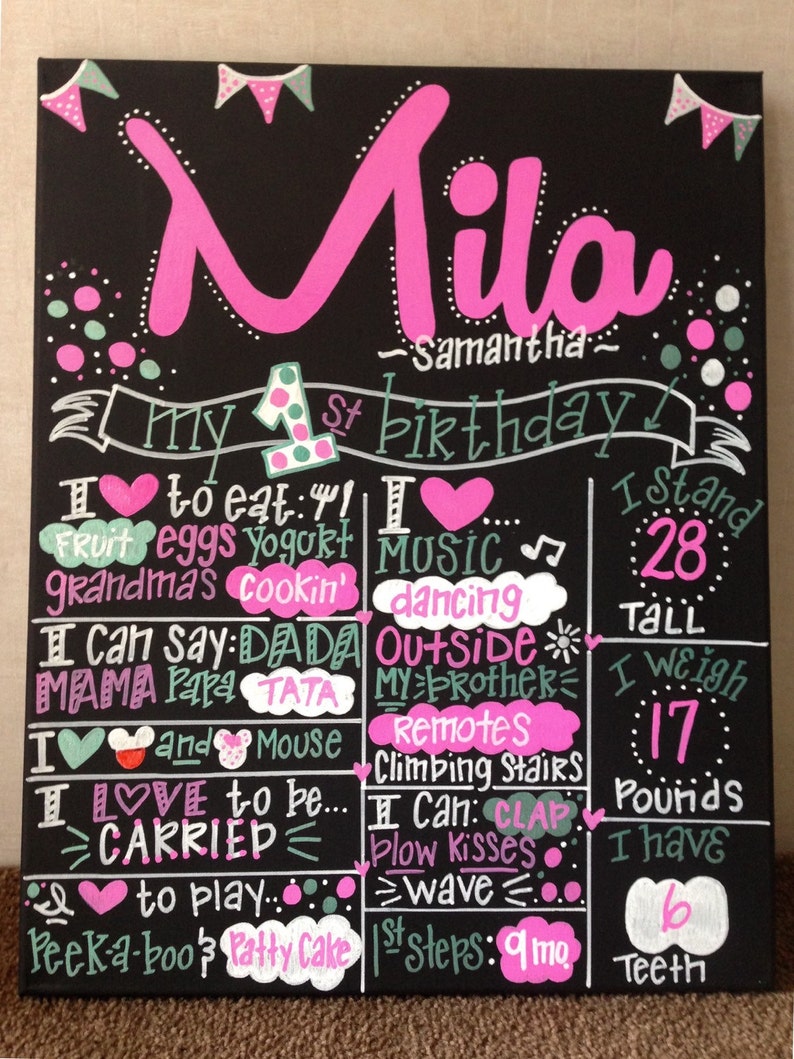 Mila
~Samantha~
my 1st birthday
I ♥ to eat:
FRUIT eggs yogurt
grandmas cookin'
I can say: DADA
MAMA Papa TATA
I ♥ and Mouse
I LOVE to be...
CARRIED
I ♥ to play...
Peek-a-boo & Patty Cake
I ♥....
MUSIC
dancing
OUTSIDE
MY brother
REMOTES
Climbing stairs
I Can: CLAP
blow kisses
wave
1st steps: 9 mo.
I Stand
28
TALL
I weigh
17
Pounds
I have
6
Teeth